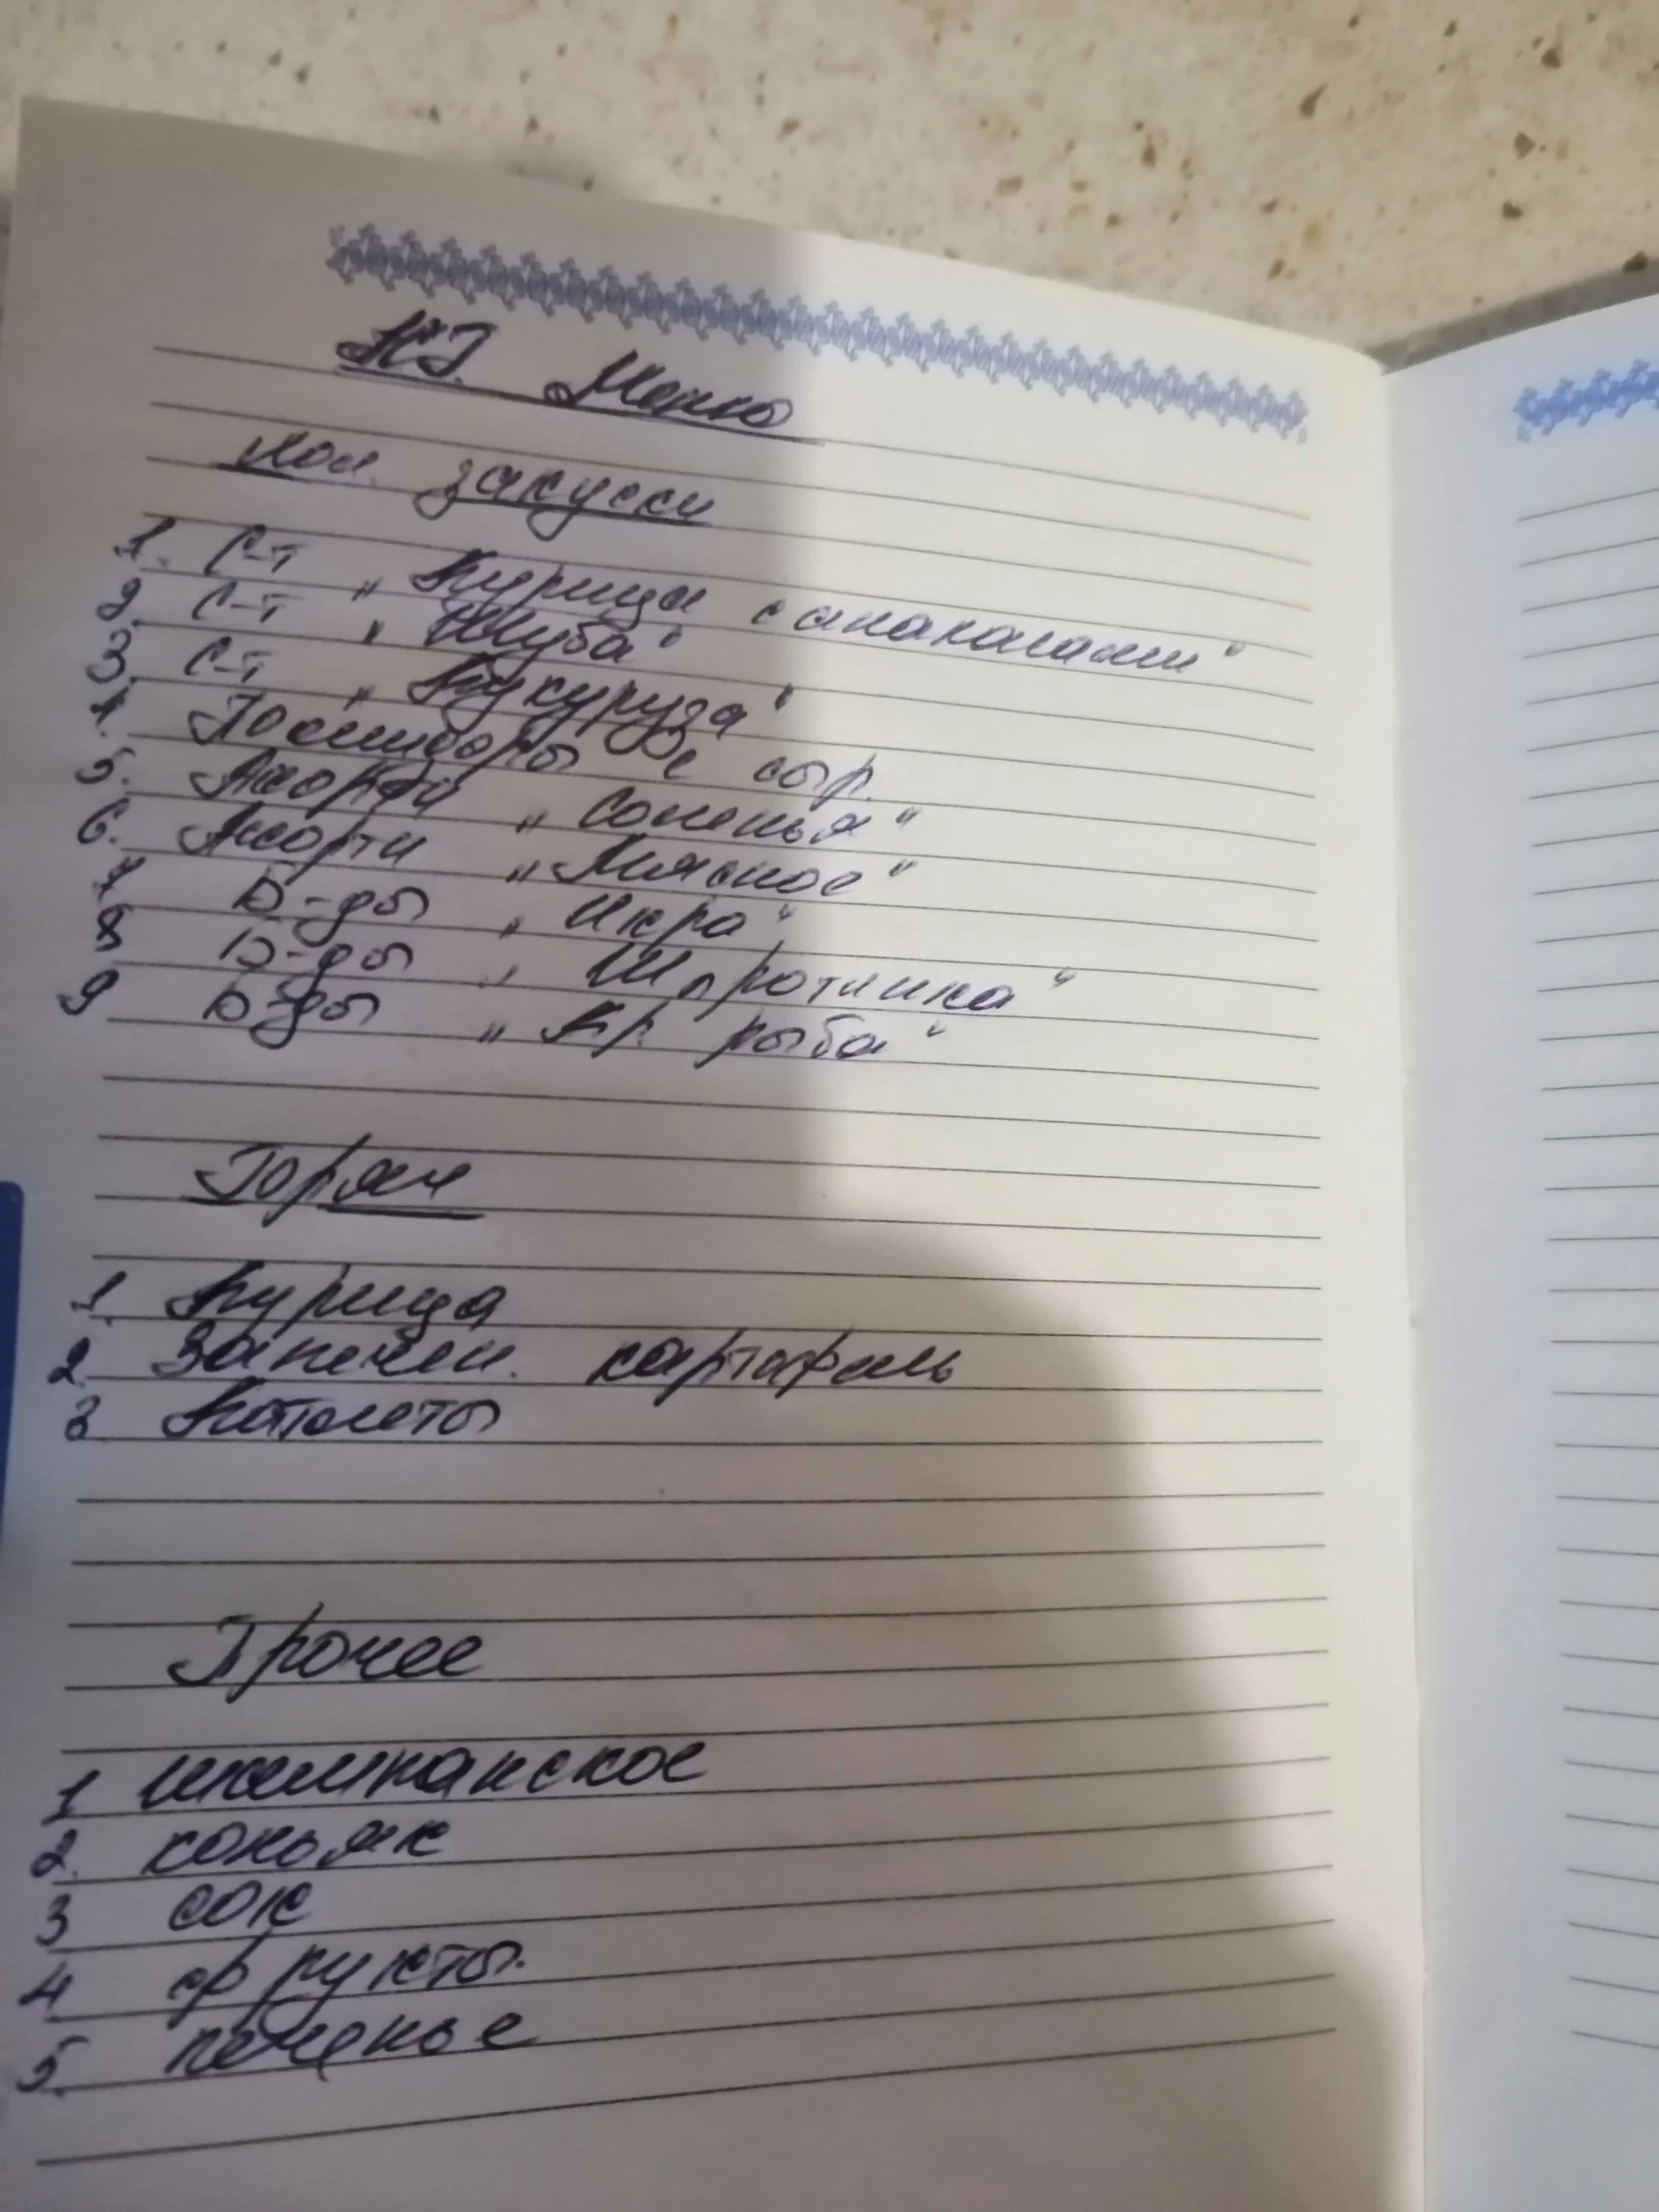 НГ. Меню
Хол. закуски
1. С-т "Курица с ананасами"
2. С-т "Шуба"
3. С-т "Кукуруза"
4. Помидоры с сыр.
5. Ассорти "Соленья"
6. Ассорти "Мясное"
7 Б-ды "Икра"
8 Б-ды "Шпротинка"
9 Б-ды "Кр. рыба"
Горяч
1. Курица
2. Запечен. картофель
3 Котлеты
Прочее
1 шампанское
2. коньяк
3 сок
4 фрукты.
5. печенье